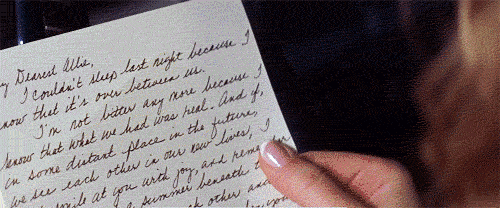 y Dearest Allie,
I couldn't sleep last night because I
know that it's over between us.
I'm not bitter any more because I
know that what we had was real. And if,
in some distant place in the future,
we see each other in our new lives, I
smile at you with joy and remem
summer beneath
each other and
you